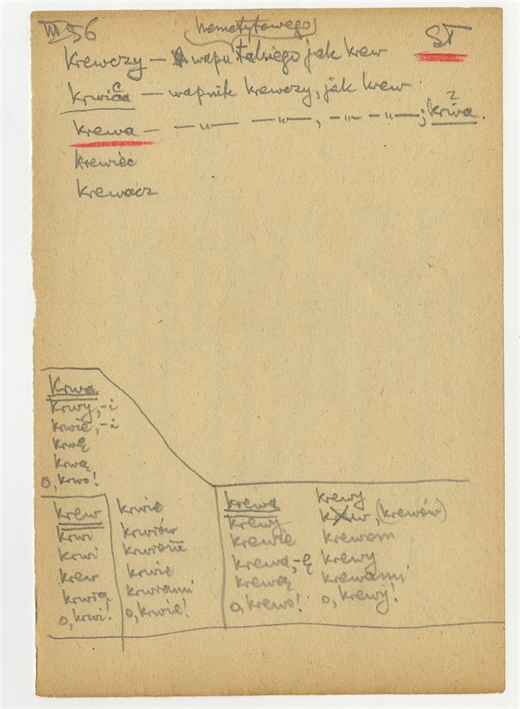 III 56 hematytowego ST
krewczy — wapń takiego jak krew
krwica — wapnik krewczy, jak krew
krewa — —„— —„—, —„— —„—; krwa.
krewiec
krewacz
krwa
krwy, -i
krwie, -i
krwę
krwą
o, krwo!
krew
krwi
krwi
krew
krwią
o, krwi!
krwie
krwiów
krwiom
krwie
krwiami
o, krwie!
krewa
krewy
krewie
krewą, -ę
krewą
o, krewo!
krewy
krew, (krewów)
krewom
krewy
krewami
o, krewy!